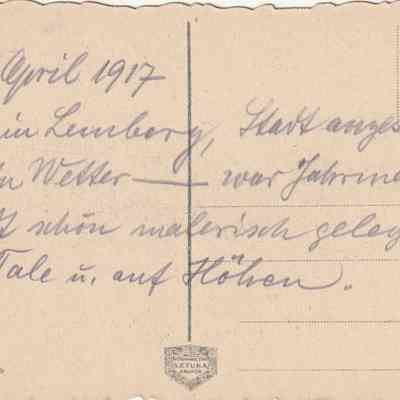 April 1917
in Lemberg, Stadt anges
n Wetter — war Jahrma
t schön malerisch geleg
Tale u. auf Höhen.
SZTUKA
KRAKÓW